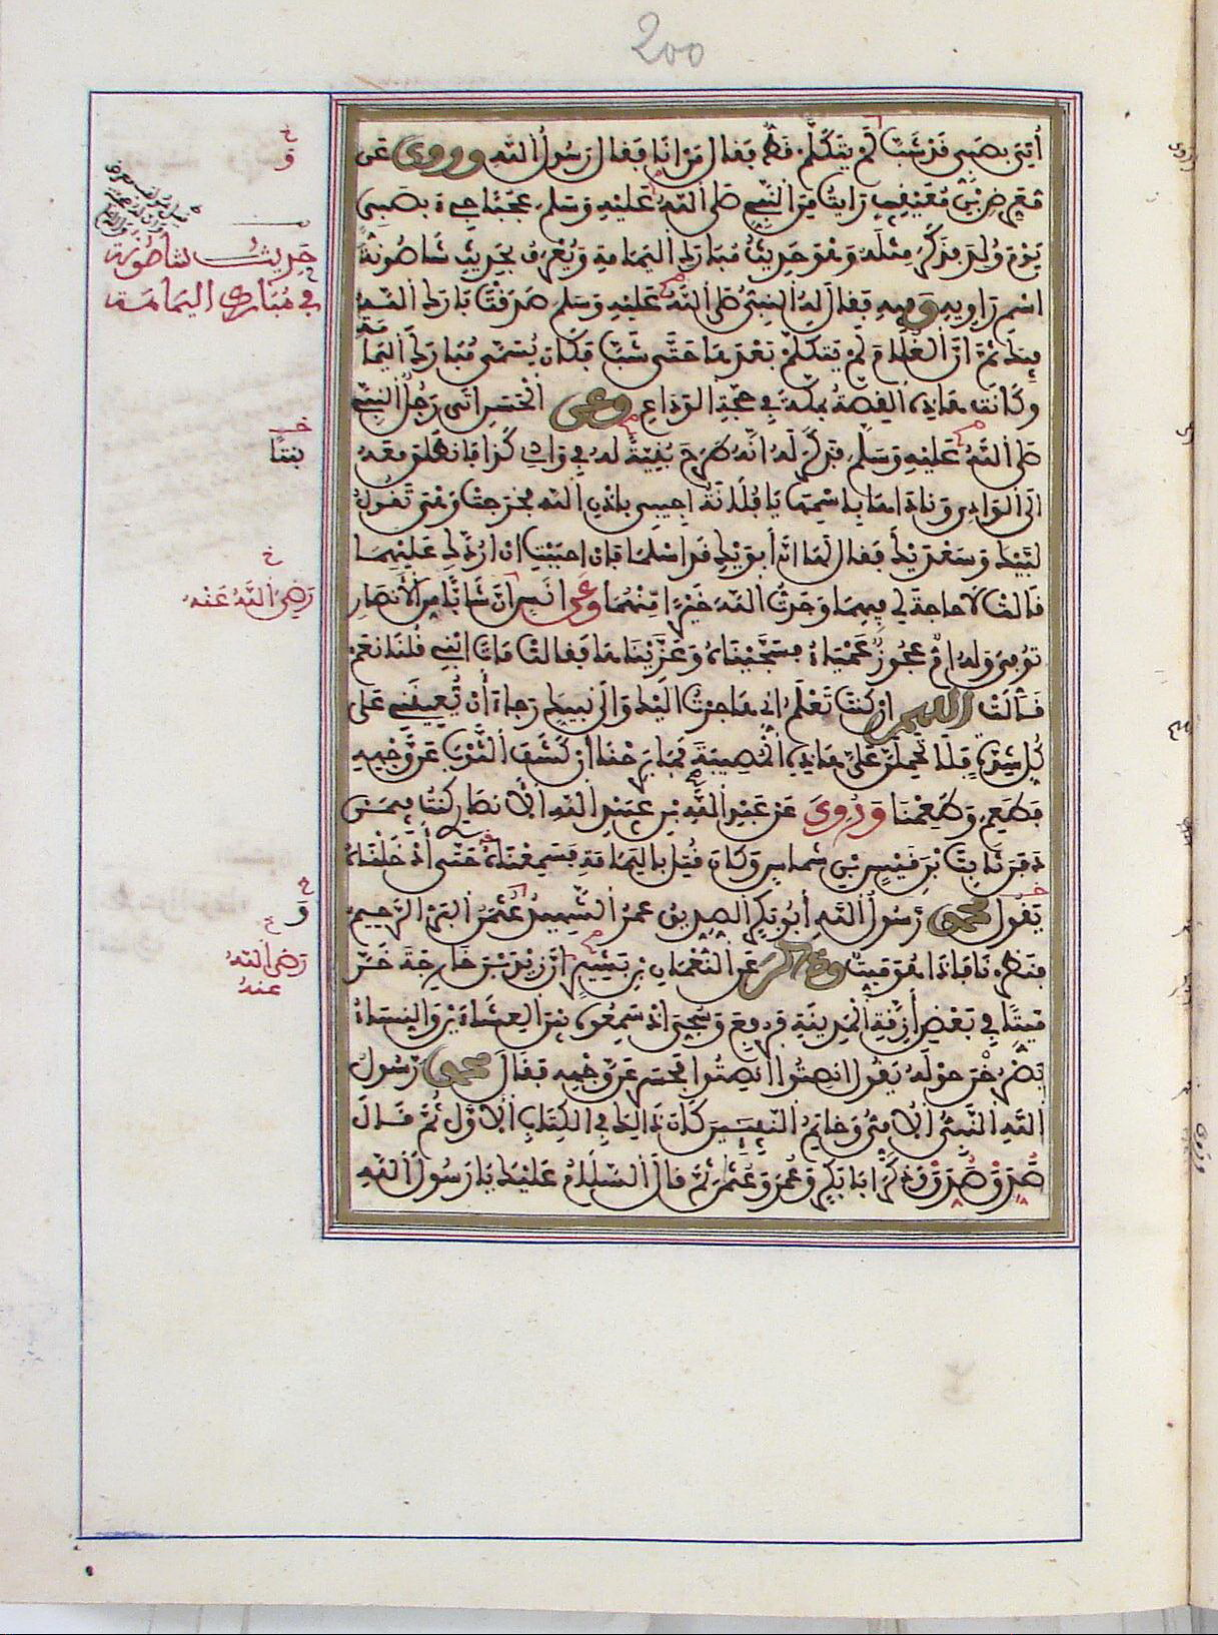 200
أُتِيَ بصَبِي قَدْ شَبَّ لَمْ يَتَكَلَّمْ قَطُّ فقال مَنْ أنَا فقال رَسُولُ اللَّهِ وروي عَن
مُعَرِّضِ بْنِ مُعَيْقِيبٍ رَأيتُ مِنَ النَّبِيِّ صَلى اللهُ عَلَيْهِ وَسَلم عَجَبًا جِيءَ بصَبِيّ
يَوْمَ وُلِدَ فذَكَرَ مِثْلَهُ وَهْوَ حَدِيثُ مُبَارَكِ اليَمَامةِ وَيُعْرَفُ بحَدِيثِ شَاصُونَةَ
اسْمِ رَاوِيهِ وَفيهِ فقال لَهُ النبيُّ صَلى اللهُ عَلَيْهِ وَسَلم صَدَقْتَ بَارَكَ اللهُ
فِيكَ ثُمَّ اِنَّ الغُلَامَ لَمْ يَتكلمْ بَعْدَهَا حَتَّى شَبَّ فكَانَ يُسَمَّى مُبَارَكَ اليَمَامَةِ
وكَانَت هَاذِهِ القِصَّةُ بمَكَّةَ فِي حَجَّةِ الوَدَاعِ وعن الْحَسَنِ اتَى رَجُلٌ النبِيَّ
صَلى اللهُ عَلَيْهِ وَسَلَّم فذكَرَ لَهُ انَّهُ طَرَحَ بُنَيَّةً لَهُ فِي وَادِي كَذَا فانطَلَقَ مَعَهُ
الَى الوَادِي وَنَادَاهَا بِاسْمِهَا يَا فُلَانَةُ اجِيبِي بإذْنِ اللهِ فخَرَجتْ وَهْيَ تَقُولُ
لَبَّيْكَ وَسَعْدَيْكَ فقال لَهَا انَّ أبَوَيْكِ قَد اسْلَمَا فإن احبَبْتِ انْ ارُدَّكِ عَلَيْهِمَا
قالتْ لَا حاجةَ لِي فِيهِمَا وَجَدتُ اللهَ خَيْرًا مِّنْهُمَا وعَن انَسٍ انَّ شَابًّا مِنَ الأنصَارِ
تُوُفِّيَ وَلَهُ امٌّ عَجُوزٌ عَمْيَاءُ فسَجَّيْنَاهُ وَعَزَّيْنَاهَا فقالتْ مَاتَ ابْنِي قُلْنَا نَعَمْ
قَالَتْ اللهم إن كنتَ تَعْلَمُ انِّي هَاجرْتُ الَيْكَ وَالَى نَبيِّكَ رَجاءَ أنْ تُعِينَنِي عَلى
كُلِّ شِدَّةٍ فَلَا تَحمِلَنَّ عَلَيَّ هَاذِهِ الْمُصِيبَةَ فمَا بَرِحْنَا أن كَشَفَ الثَّوْبَ عَن وَّجْهِهِ
فَطَعِمَ وَطَعِمْنَا وَرُوِيَ عَن عَبْدِ اللَّهِ بْنِ عُبَيْدِ اللهِ الأنصَارِي كنتُ فِيمَن
دَفَنَ ثَابِتَ بْنَ قَيْسِ بْنِ شماسٍ وَكَانَ قُتِلَ باليَمَامَةِ فَسَمِعْنَاهُ حَتَّى أدْخَلْنَاهُ
يَقُول محمد رَسُولُ اللَّهِ أبُو بَكرٍ الصِّدِّيق عُمَرُ الشَّهِيدُ عُثمَانُ البَرُّ الرَّحِيمُ
فنَظَرْنَا فإذَا هُوَ مَيِّتٌ وذكر عَنِ النُّعْمَانِ بْنِ بَشِيرٍ انَّ زيْدَ بْنَ خَارِجَةَ خَرَّ
مَيِّتًا فِي بَعْضِ أزِقَّةِ الْمَدِينَةِ فرُفِعَ وَسُجِّيَ اذْ سَمِعُوهُ بَيْنَ العِشَاءَيْنِ وَالنِّسَاءُ
يَصْرُخْنَ حَوْلَهُ يَقُول انصِتُوا انصِتُوا فحَسَرَ عَن وَّجْهِهِ فقال محمد رَّسُولُ
اللَّهِ النَّبِيُّ الأُمِّيُّ وَخَاتِمُ النَّبِيِّينَ كَانَ ذَالِكَ فِي الكِتَابِ الأوَّلِ ثُمَّ قَالَ
صَدَقَ صَدَقَ وَذَكَرَ ابَا بَكرٍ وَعُمَرَ وَعُثمَانَ ثُمَّ قَالَ السَّلَامُ عَلَيْكَ يَا رَسُولَ اللهِ
خ
وَ
حَدِيثُ شَاصُونَة
في مُبَارك اليَمَامَة
خ
بنتًا
خ
رَضِيَ اللَّهُ عَنْه
خ
وَ
خ
رَضِيَ اللهُ
عنهُ